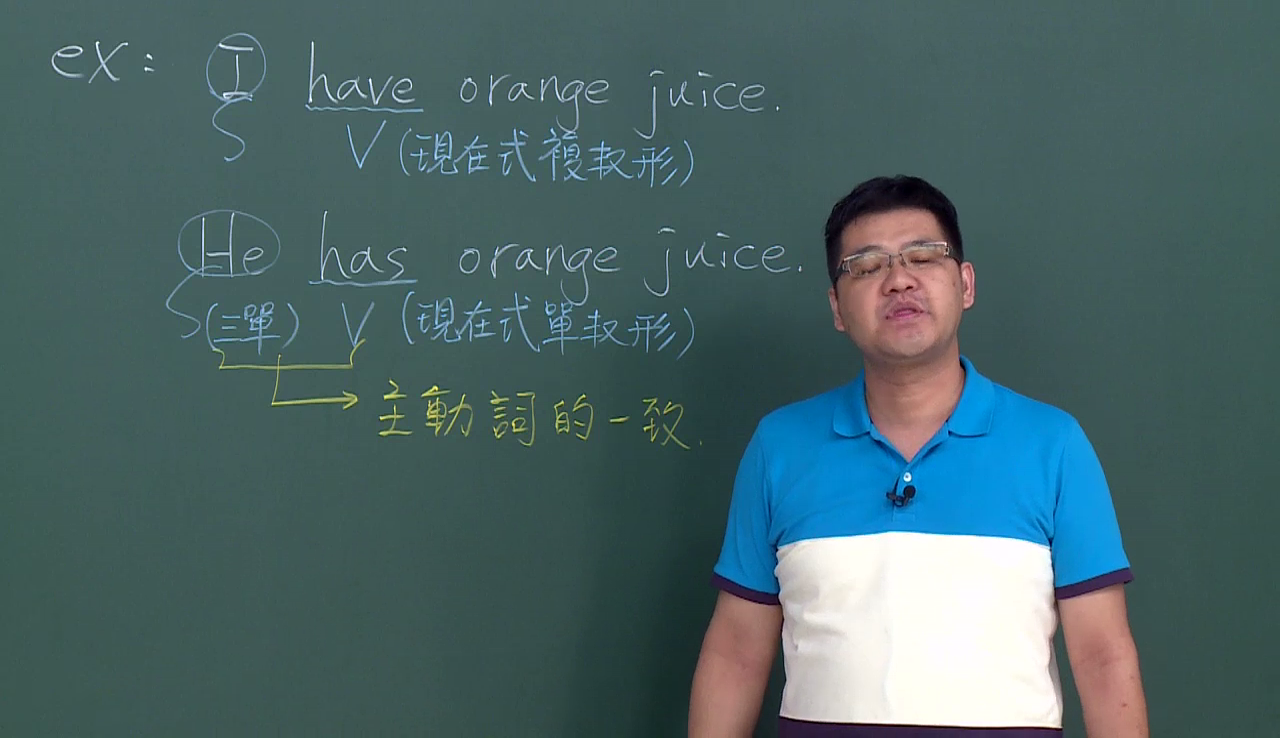 ex: I have orange juice.
S V (現在式複数形)
He has orange juice.
S(三單) V (現在式單数形)
主動詞的一致.